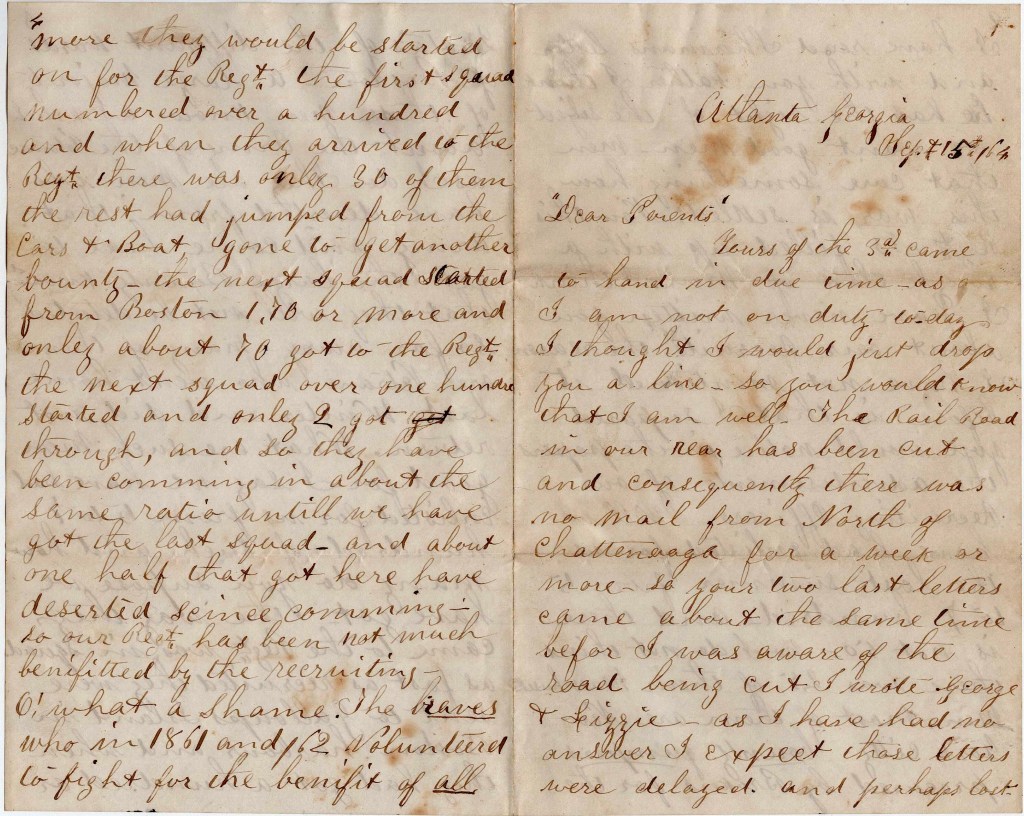 4
more they would be started
on for the Regt. the first squad
numbered over a hundred
and when they arrived to the
Regt. there was onley 30 of them
the rest had jumped from the
Cars & Boat, gone to get another
bounty - the next squad started
from Boston 1,70 or more and
onley about 70 got to the Regt.
the next squad over one hundre
started and onley 2 got got
through, and so they have
been comming in about the
same ratio untill we have
got the last squad - and about
one half that got here have
deserted scince comming -
so our Regt. has been not much
benifitted by the recruiting -
O! what a shame. The braves
who in 1861 and /62 Volunteerd
to fight for the benifit of all
1
Atlanta Georgia
Sept 15th /64
"Dear Parents"
Yours of the 3rd came
to hand in due time - as
I am not on duty to-day
I thought I would just drop
you a line - so you would know
that I am well - The Rail Road
in our rear has been cut
and consequently there was
no mail from North of
Chattenooga for a week or
more - so your two last letters
came about the same time
befor I was aware of the
road being cut I wrote George
& Lizzie - as I have had no
answer I expect those letters
were delayed. and perhaps lost-